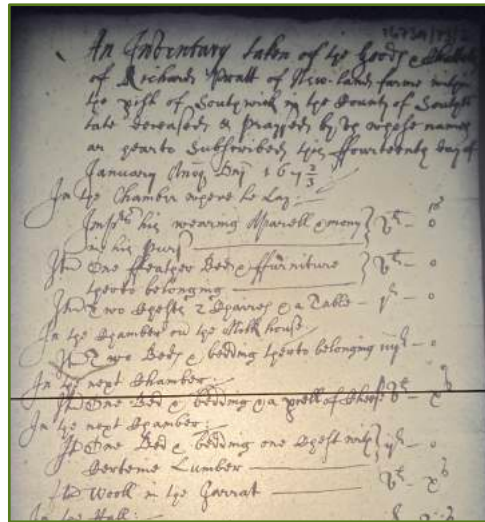 An Inventary taken of the Goods & Chattells
of Richard Pratt of New-lands farme within
the pish of Southwick in the County of Southt
late deceased & prazzed by us whose names
ar hearto Subscribed this ffourteenth day of
January Ano Dni 1672/3
In the Chamber where he Lay
Imprs his wearing Aparell & mony
in his purs
Itm One ffeather Bed & ffurniture
therto belonging
Itm two Chests 2 Chaires & a Table
In the Chamber ov the Milk house
Itm two Beds & bedding therto belonging
In the next Chamber
Itm One Bed & bedding & a prcll of Cheese
In the next Chamber
Itm One Bed & bedding one Chest with
Lumber
Itm Wooll in the Garrat
In the Hall